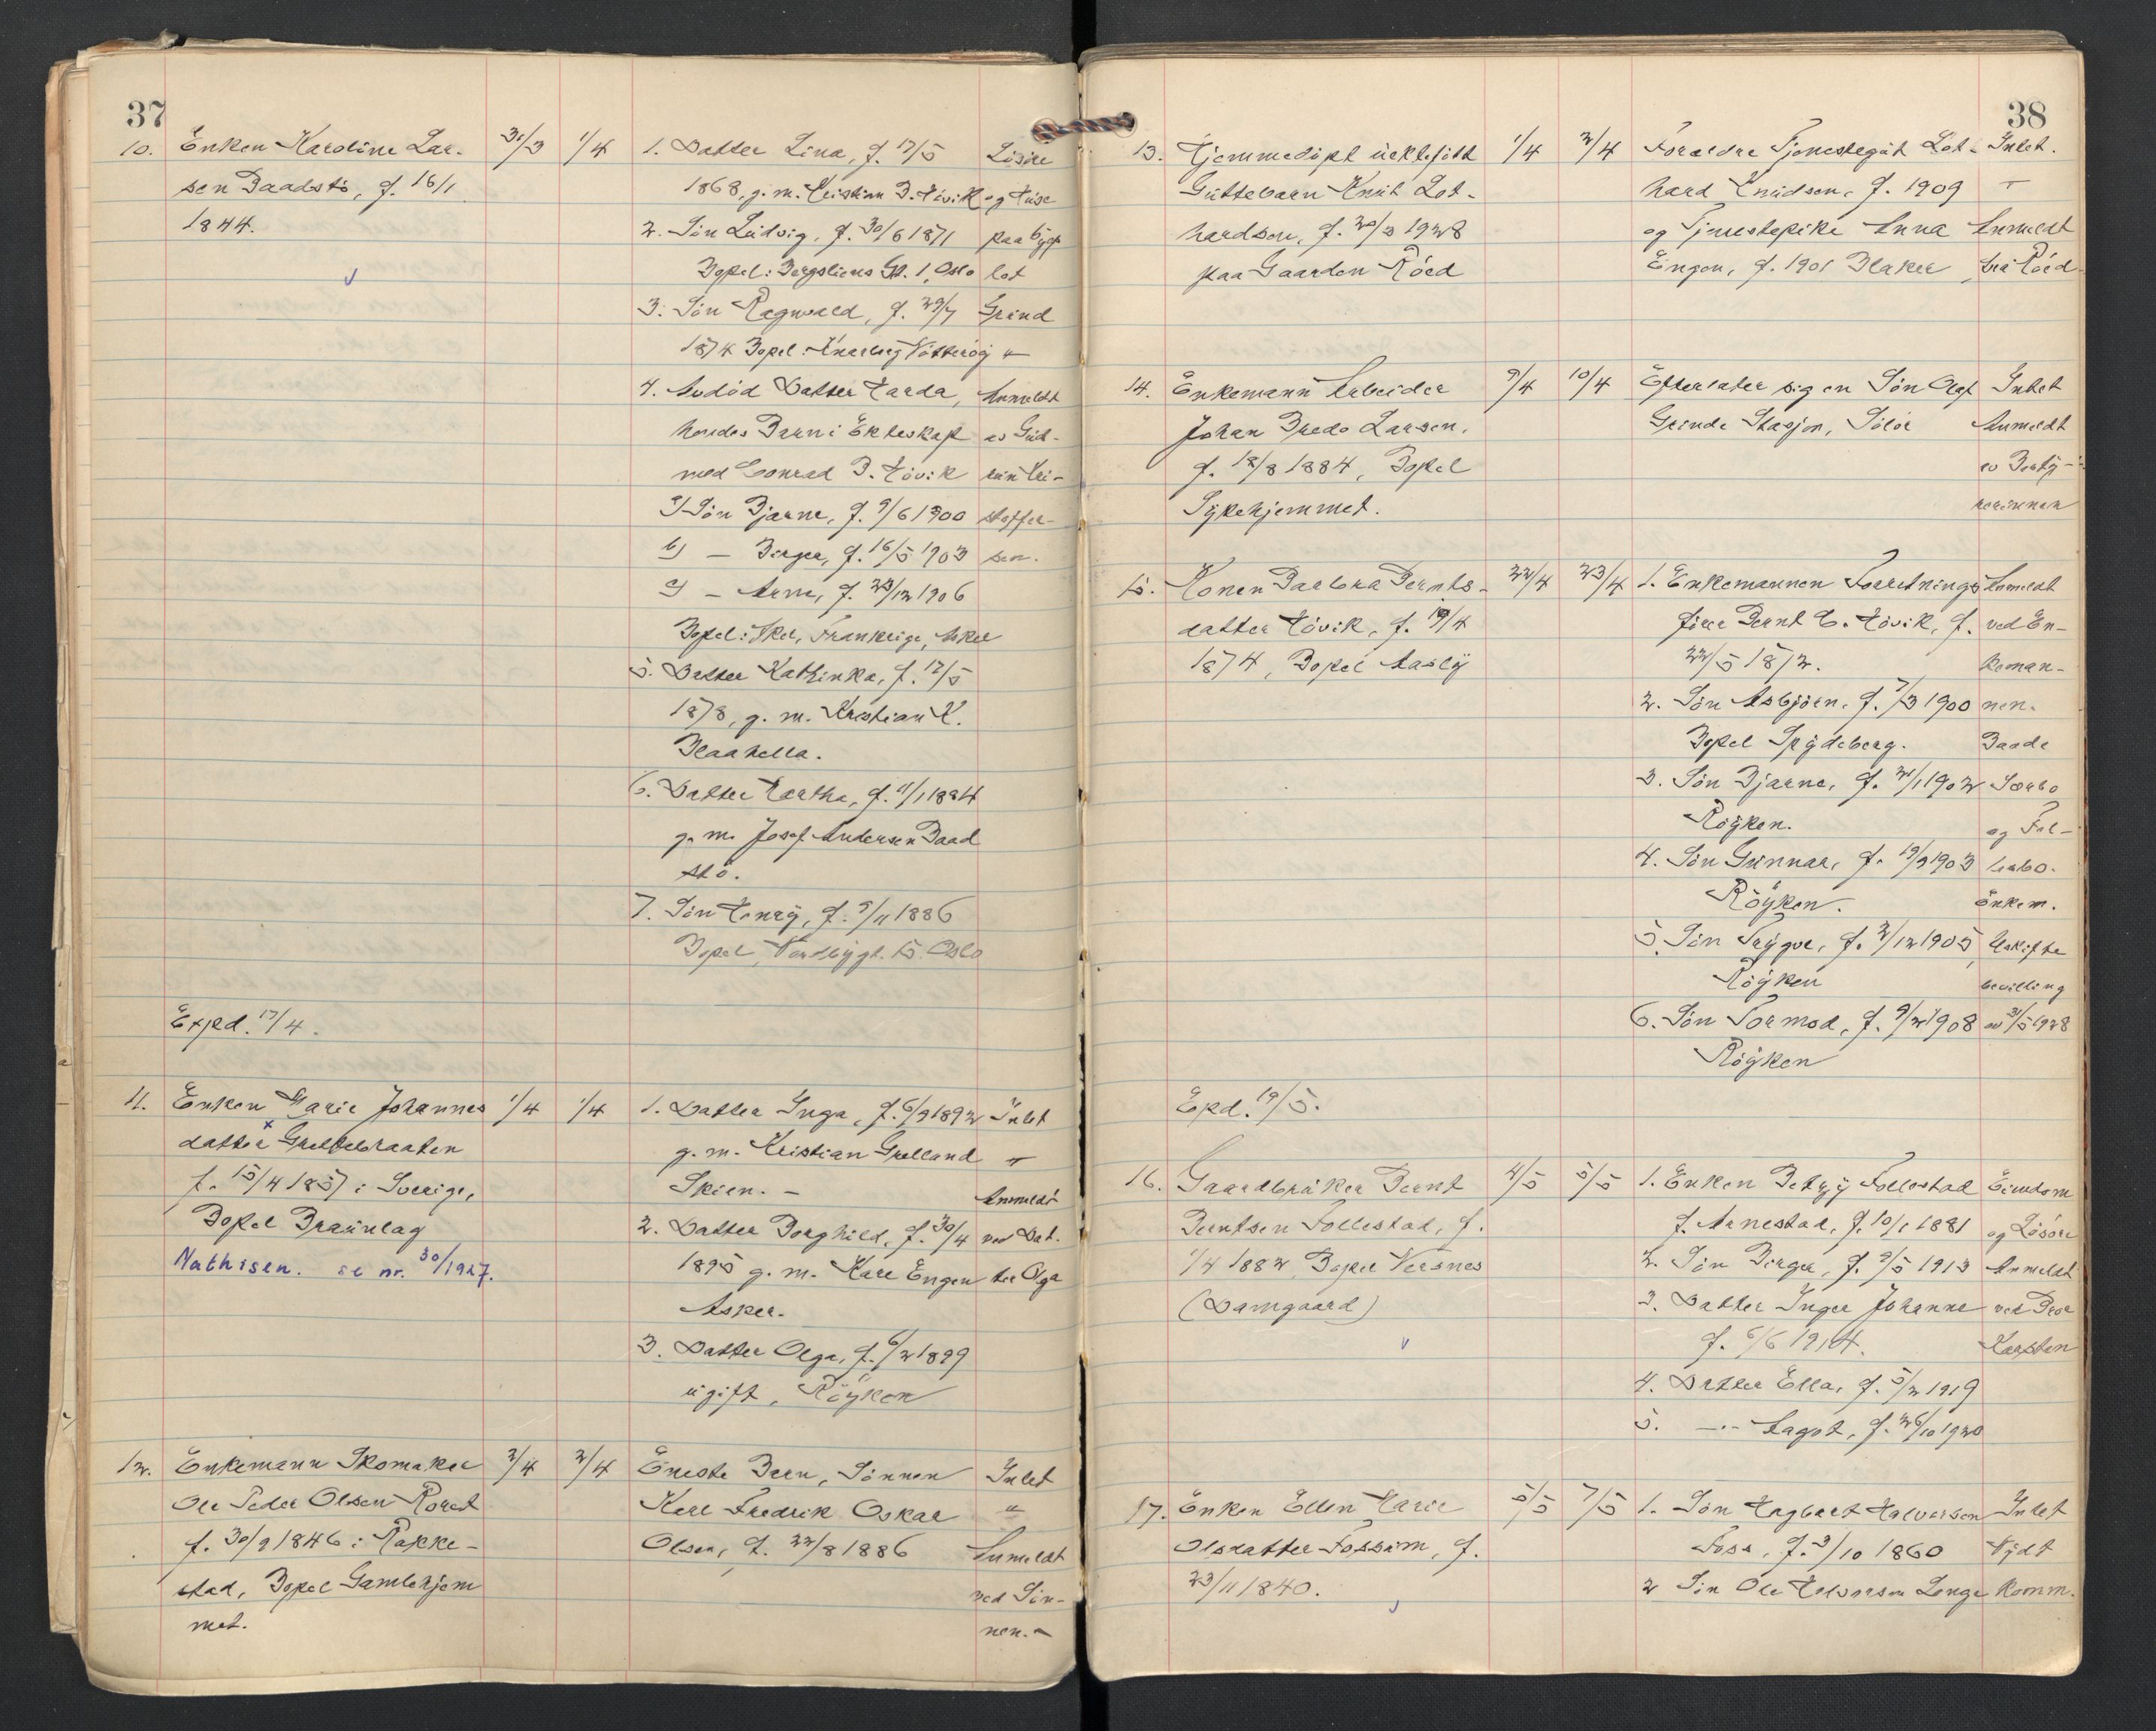 37
10. Enken Karoline Lar-
sen Baadstö, f. 16/1
1844.
31/3 1/4
1. Datter Lina, f. 17/5
1868, g. m. Kristian B. Hövik
2. Sön Ludvig, f. 30/6 1871
Bopel: Bergsliens Gt. 1, Oslo
3. Sön Ragnvald, f. 29/7
1874 Bopel: Knarberg Nötteröy
4. Avdöd Datter Marda,
hendes Barn i Ekteskap
med Conrad B. Hövik
a) Sön Bjarne, f. 9/6 1900
b) — Birger, f. 16/5 1903
c) — Arne, f. 23/12 1906
Bopel: Asker
5. Datter Kathinka, f. 17/5
1878, g. m. Kristian K.
Blaahella.
6. Datter Martha, f. 11/1 1884
g. m. Josef Andersen Baad
stö.
7. Sön Henry, f. 9/11 1886
Bopel, 15. Oslo
Lösöre
og Huse
paa byg
lot
Grund
"
Anmeldt
av Gud-
run Kri-
stoffer-
sen.
Expd. 17/4.
11. Enken Marie Johannes
datter Grettebraaten
f. 15/4 1857 i Sverige,
Bopel Braunlag
Nathisen. se nr. 30/1927.
1/4 1/4
1. Datter Inga, f. 6/9 1892
g. m. Kristian Grelland
Skien. —
2. Datter Borghild, f. 30/4
1895 g. m. Kare Engen
Asker.
3. Datter Olga, f. 6/2 1899
ugift, Röyken
Intet
"
Anmeldt
ved Dat-
ter Olga
12. Enkemann Skomaker
Ole Peder Olsen Rorest
f. 30/9 1846 i Rakke-
stad, Bopel Gamlehjem
met.
2/4 2/4
Eneste Barn, Sönnen
Karl Fredrik Oskar
Olsen, f. 22/8 1886
Intet
"
Anmeldt
ved Sön-
nen. —
38
13. Hjemmedöpt uektefött
Guttebarn Knut Lot-
hardsen, f. 20/3 1928
paa Gaarden Röed
1/4 2/4
Foreldre Tjenestegut Lot-
hard Knudsen, f. 1909
og Tjenestepike Anna
Engen, f. 1901 Blaker
Intet.
"
Anmeldt
fra Röed
14. Enkemann Arbeider
Johan Bredo Larsen.
f. 18/8 1884, Bopel
Sykehjemmet.
9/4 10/4
Efterlater sig en Sön Olaf
Grinde Stasjon, Solör
Intet
Anmeldt
av Besty-
rerinnen
15. Konen Barbra Bernts-
datter Hövik, f. 19/4
1874, Bopel Aasly
22/4 23/4
1. Enkemannen Forretnings
förer Bernt C. Hövik, f.
22/5 1872.
2. Sön Asbjörn, f. 7/3 1900
Bopel Spydeberg.
3. Sön Bjarne, f. 21/1 1902
Röyken.
4. Sön Gunnar, f. 19/9 1903
Röyken.
5. Sön Trygve, f. 2/12 1905
Röyken
6. Sön Tormod, f. 9/2 1908
Röyken
Anmeldt
ved En-
keman-
nen.
Baade
Særbo
og Fel-
lesbo.
Enkem.
Uskifte
bevilling
av 3/5 1928
Epd. 19/5.
16. Gaardbruker Bernt
Berntsen Follestad, f.
1/4 1882 Bopel Versnes
(Damgaard)
4/5 5/5
1. Enken Betzy Follestad
f. Arnestad, f. 10/1 1881
2. Sön Birger, f. 9/5 1913
3. Datter Inger Johanne
f. 6/6 1914.
4. Datter Ella, f. 5/2 1919
5. —"— Aagot, f. 26/10 1920
Eiendom
og Lösöre
Anmeldt
ved Bror
Karsten
17. Enken Ellen Marie
Olsdatter Fossum, f.
23/11 1840.
5/5 7/5
1. Sön Hagbart Halvorsen
Foss, f. 3/10 1860
2 Sön Ole Halvorsen Lenge
Intet
Nydt
Komm.